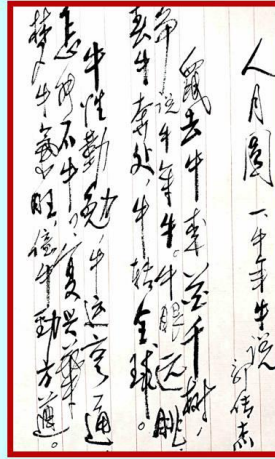 人月圆 一 牛年牛说
郭传杰
鼠去牛来花千树,
争说牛年牛。牛眼远眺
春牛奔处,牛转全球。
牛性勤勉,牛运亨通
怎不牛?复兴华
梦牛氣旺,牛劲方遒。